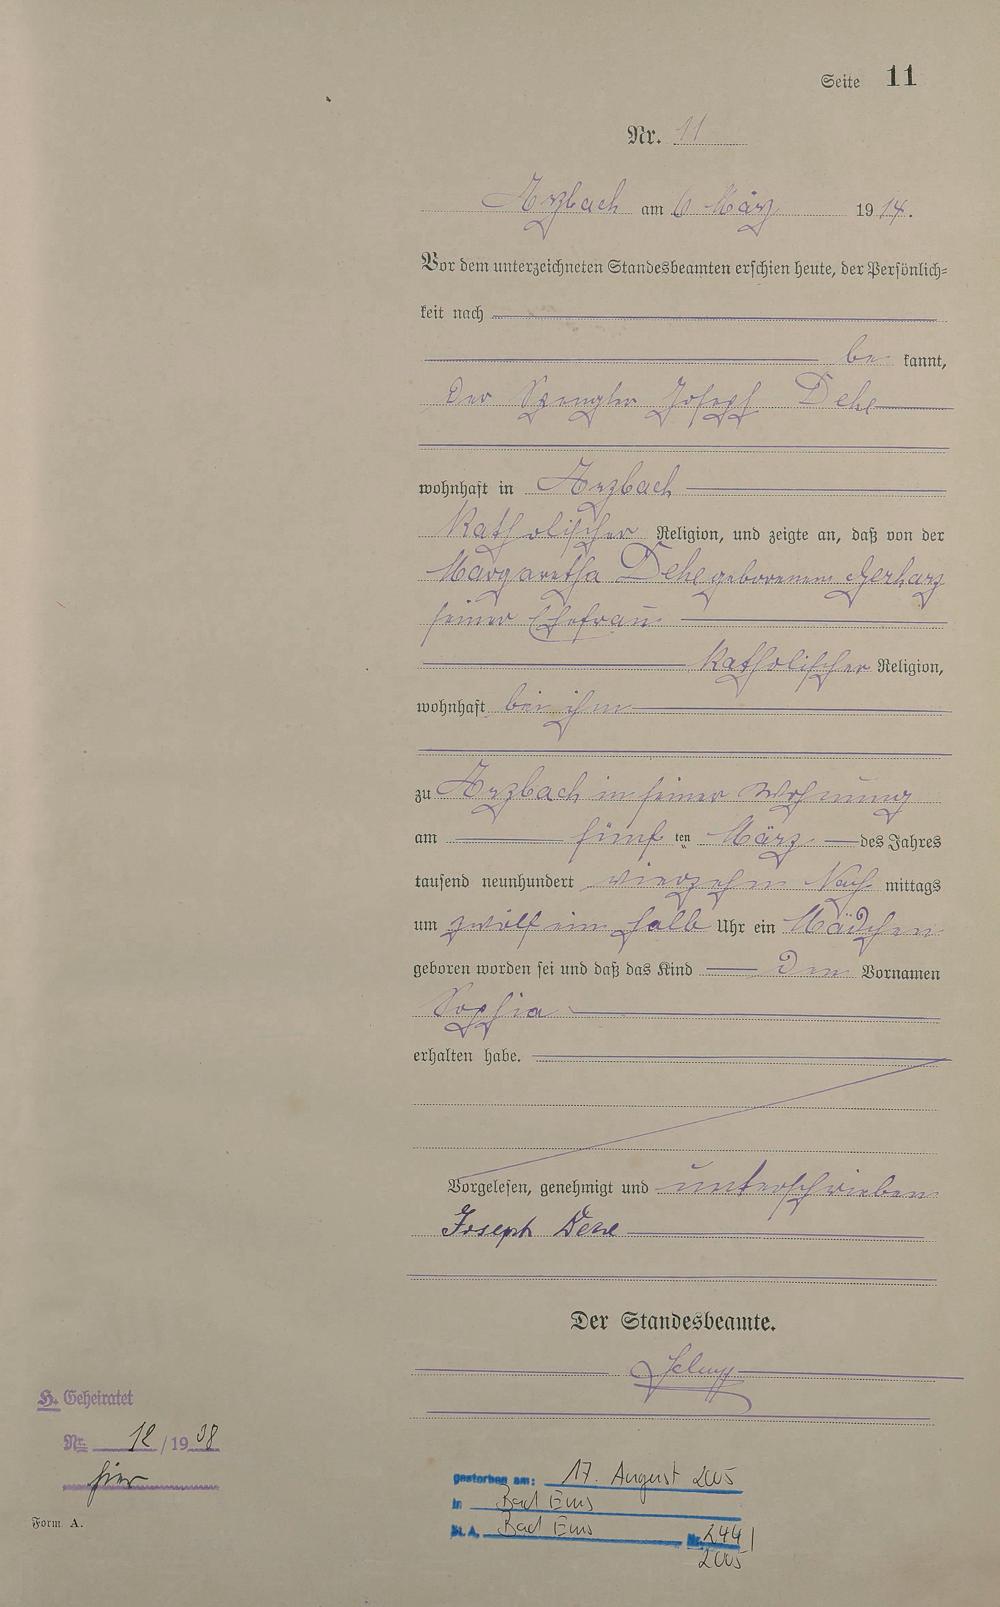 Seite 11
Nr. 11
Arzbach am 6 März 1914.
Vor dem unterzeichneten Standesbeamten erschien heute, der Persönlich-
keit nach
be kannt,
der Spengler Joseph Dehe
wohnhaft in Arzbach
katholischer Religion, und zeigte an, daß von der
Margaretha Dehe geborenen Gerharz
seiner Ehefrau
katholischer Religion,
wohnhaft bei ihm
zu Arzbach in seiner Wohnung
am fünf ten März des Jahres
tausend neunhundert vierzehn Nach mittags
um zwölf ein halb Uhr ein Mädchen
geboren worden sei und daß das Kind den Vornamen
Sophia
erhalten habe.
Vorgelesen, genehmigt und unterschrieben
Joseph Dehe
Der Standesbeamte.
H. Geheiratet
Nr. 12/1938
hier
Form A.
gestorben am: 17. August 2005
in Bad Ems
St. A. Bad Ems Nr. 244/
2005